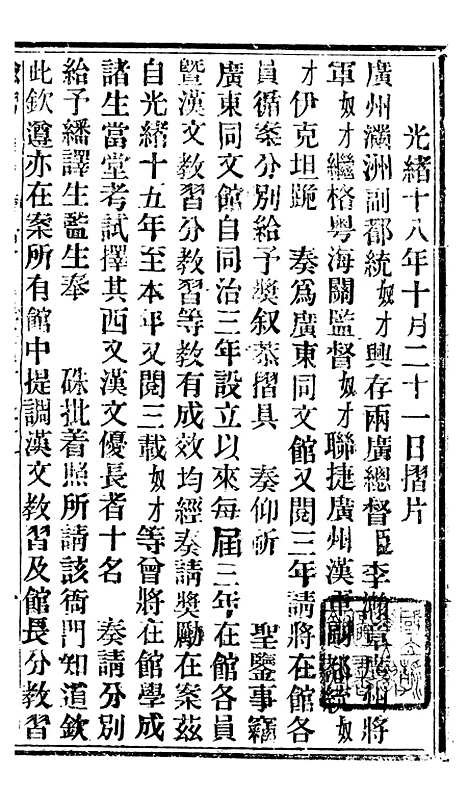 光緒十八年十月二十一日摺片
廣州滿洲副都統奴才興存兩廣總督臣李瀚章廣州將
軍奴才繼格粵海關監督奴才聯捷廣州漢軍副都統奴
才伊克坦跪 奏爲廣東同文館又閱三年請將在館各
員循案分別給予獎叙恭摺具 奏仰祈 聖鑒事竊
廣東同文館自同治三年設立以來每屆三年在館各員
暨漢文教習分教習等教有成效均經奏請獎勵在案茲
自光緒十五年至本年又閱三載奴才等曾將在館學成
諸生當堂考試擇其西文漢文優長者十名 奏請分別
給予繙譯生監生奉 硃批着照所請該衙門知道欽
此欽遵亦在案所有館中提調漢文教習及館長分教習